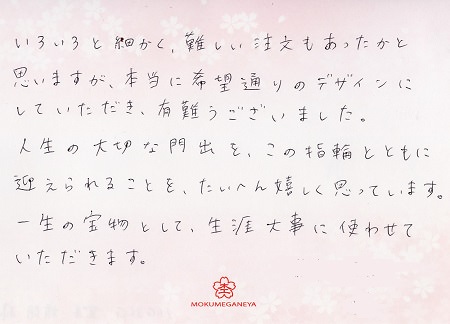 いろいろと細かく、難しい注文もあったかと
思いますが、本当に希望通りのデザインに
していただき、有難うございました。
人生の大切な門出を、この指輪とともに
迎えられることを、たいへん嬉しく思っています。
一生の宝物として、生涯大事に使わせて
いただきます。
MOKUMEGANEYA